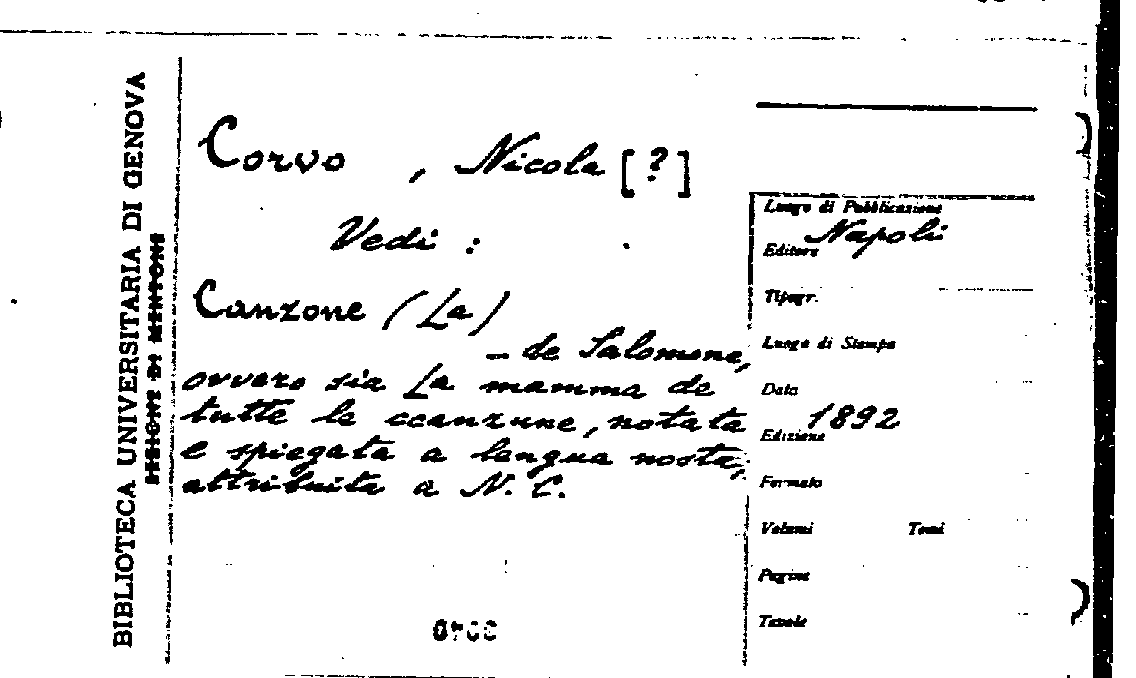 BIBLIOTECA UNIVERSITARIA DI GENOVA
Corvo, Nicola [?]
Vedi :
Canzone (La)
- de Salomone,
ovvero sia La mamma de
tutte le ccanzune, notata
e spiegata a lengua nosta,
attribuita a N. C.
Luogo di Pubblicazione
Napoli
Editore
Tipogr.
Luogo di Stampa
Data
1892
Edizione
Formato
Volumi Tomi
Pagine
Tavole